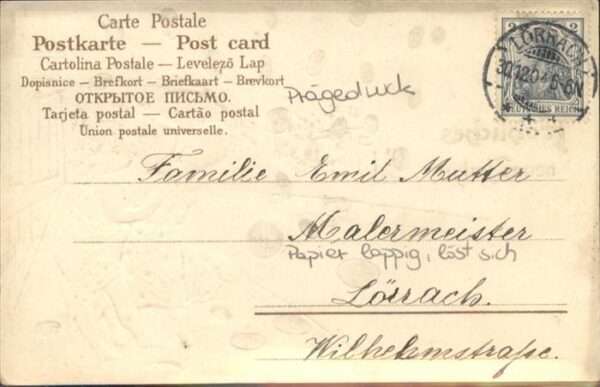 Carte Postale
Postkarte — Post card
Cartolina Postale — Levelező Lap
Dopisnice — Brefkort — Briefkaart — Brevkort
ОТКРЫТОЕ ПИСЬМО.
Tarjeta postal — Cartão postal
Union postale universelle.
Prägedruck
2 2
LÖRRACH
30.12.04. 6-7N
DEUTSCHES REICH
Familie Emil Mutter
Malermeister
Papier lappig, löst sich
Lörrach.
Wilhelmstraße.